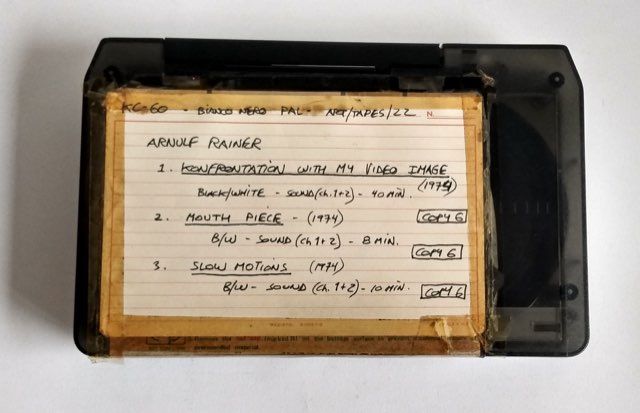 KC-60 - BIANCO NERO PAL - ART/TAPES/22 N.
ARNULF RAINER
1. KONFRONTATION WITH MY VIDEO IMAGE
(1974)
BLACK/WHITE - SOUND (ch. 1+2) - 40 MIN.
2. MOUTH PIECE - (1974) COPY 6
B/W - SOUND (ch 1+2) - 8 MIN. COPY 6
3. SLOW MOTIONS (1974)
B/W - SOUND (ch. 1+2) - 10 MIN. COPY 6
prerecorded material.